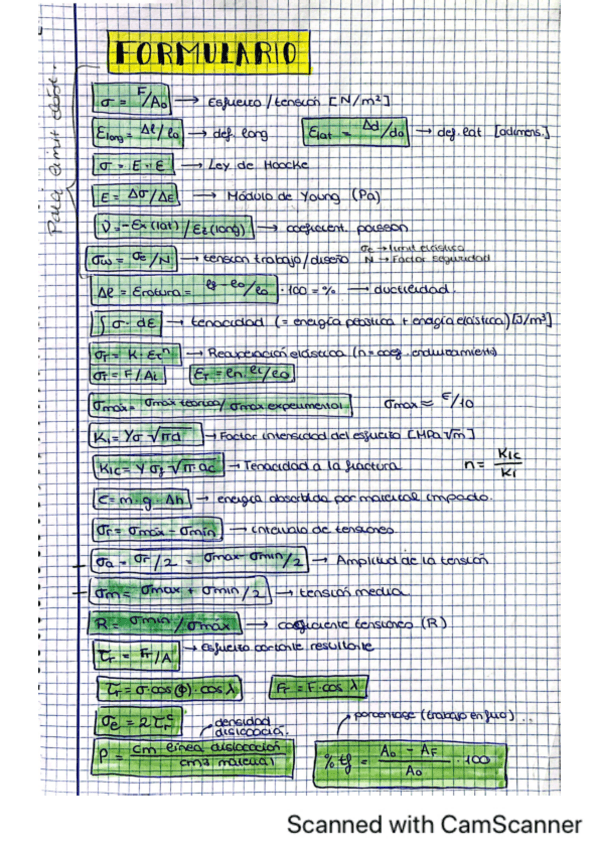 FORMULARIO
Para límit elást.
σ = F/A₀ → Esfuerzo/tensión [N/m²]
Elong = Δl/l₀ → def. long Elat = Δd/d₀ → def. lat [adimens.]
σ = E · ε → Ley de Hoocke
E = Δσ/Δε → Módulo de Young (Pa)
ν = -Ex(lat)/Ez(long) → coeficient. poisson
σw = σe/N → tensión trabajo/diseño σe → limit elástico
N → Factor seguridad
Δl = Erotura = lf-l₀/l₀ · 100 = % → ductilidad.
∫ σ · dE → tenacidad (= energía plástica + energía elástica) [J/m³]
σr = K · Erⁿ → Recuperación elástica (n = coef. endurecimiento)
σr = F/Ai Er = ln li/l₀
σmax = σmax teórica/σmax experimental σmax ≈ E/10
K₁ = Yσ √πd → Factor intensidad del esfuerzo [MPa√m]
KIC = Y σf √π ac → Tenacidad a la fractura n = KIC/KI
E = m · g · Δh → energía absorbida por material impacto.
σr = σmáx - σmín → intervalo de tensiones
σa = σr/2 = σmax - σmin/2 → Amplitud de la tensión
σm = σmax + σmin/2 → tensión media
R = σmin/σmáx → coeficiente tensiones (R)
τr = Fr/A → esfuerzo cortante resultante
τr = σ · cos(φ) · cos λ Fr = F · cos λ
σe = 2τrᶜ
densidad dislocación.
porcentaje (trabajo en frío)...
ρ = cm línea dislocación/cm3 material
% tf = A₀ - AF/A₀ · 100
Scanned with CamScanner